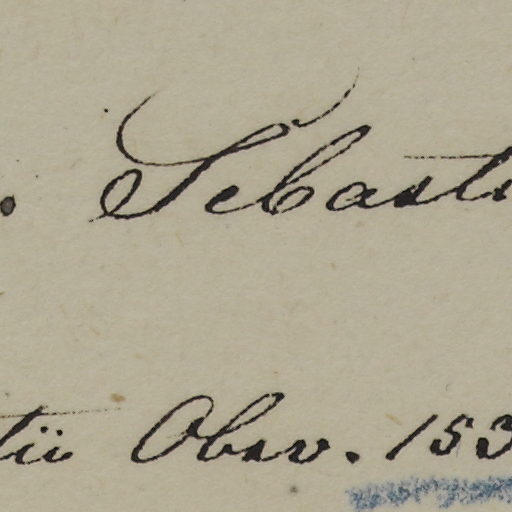 . Sebasti
tii Obsv. 153